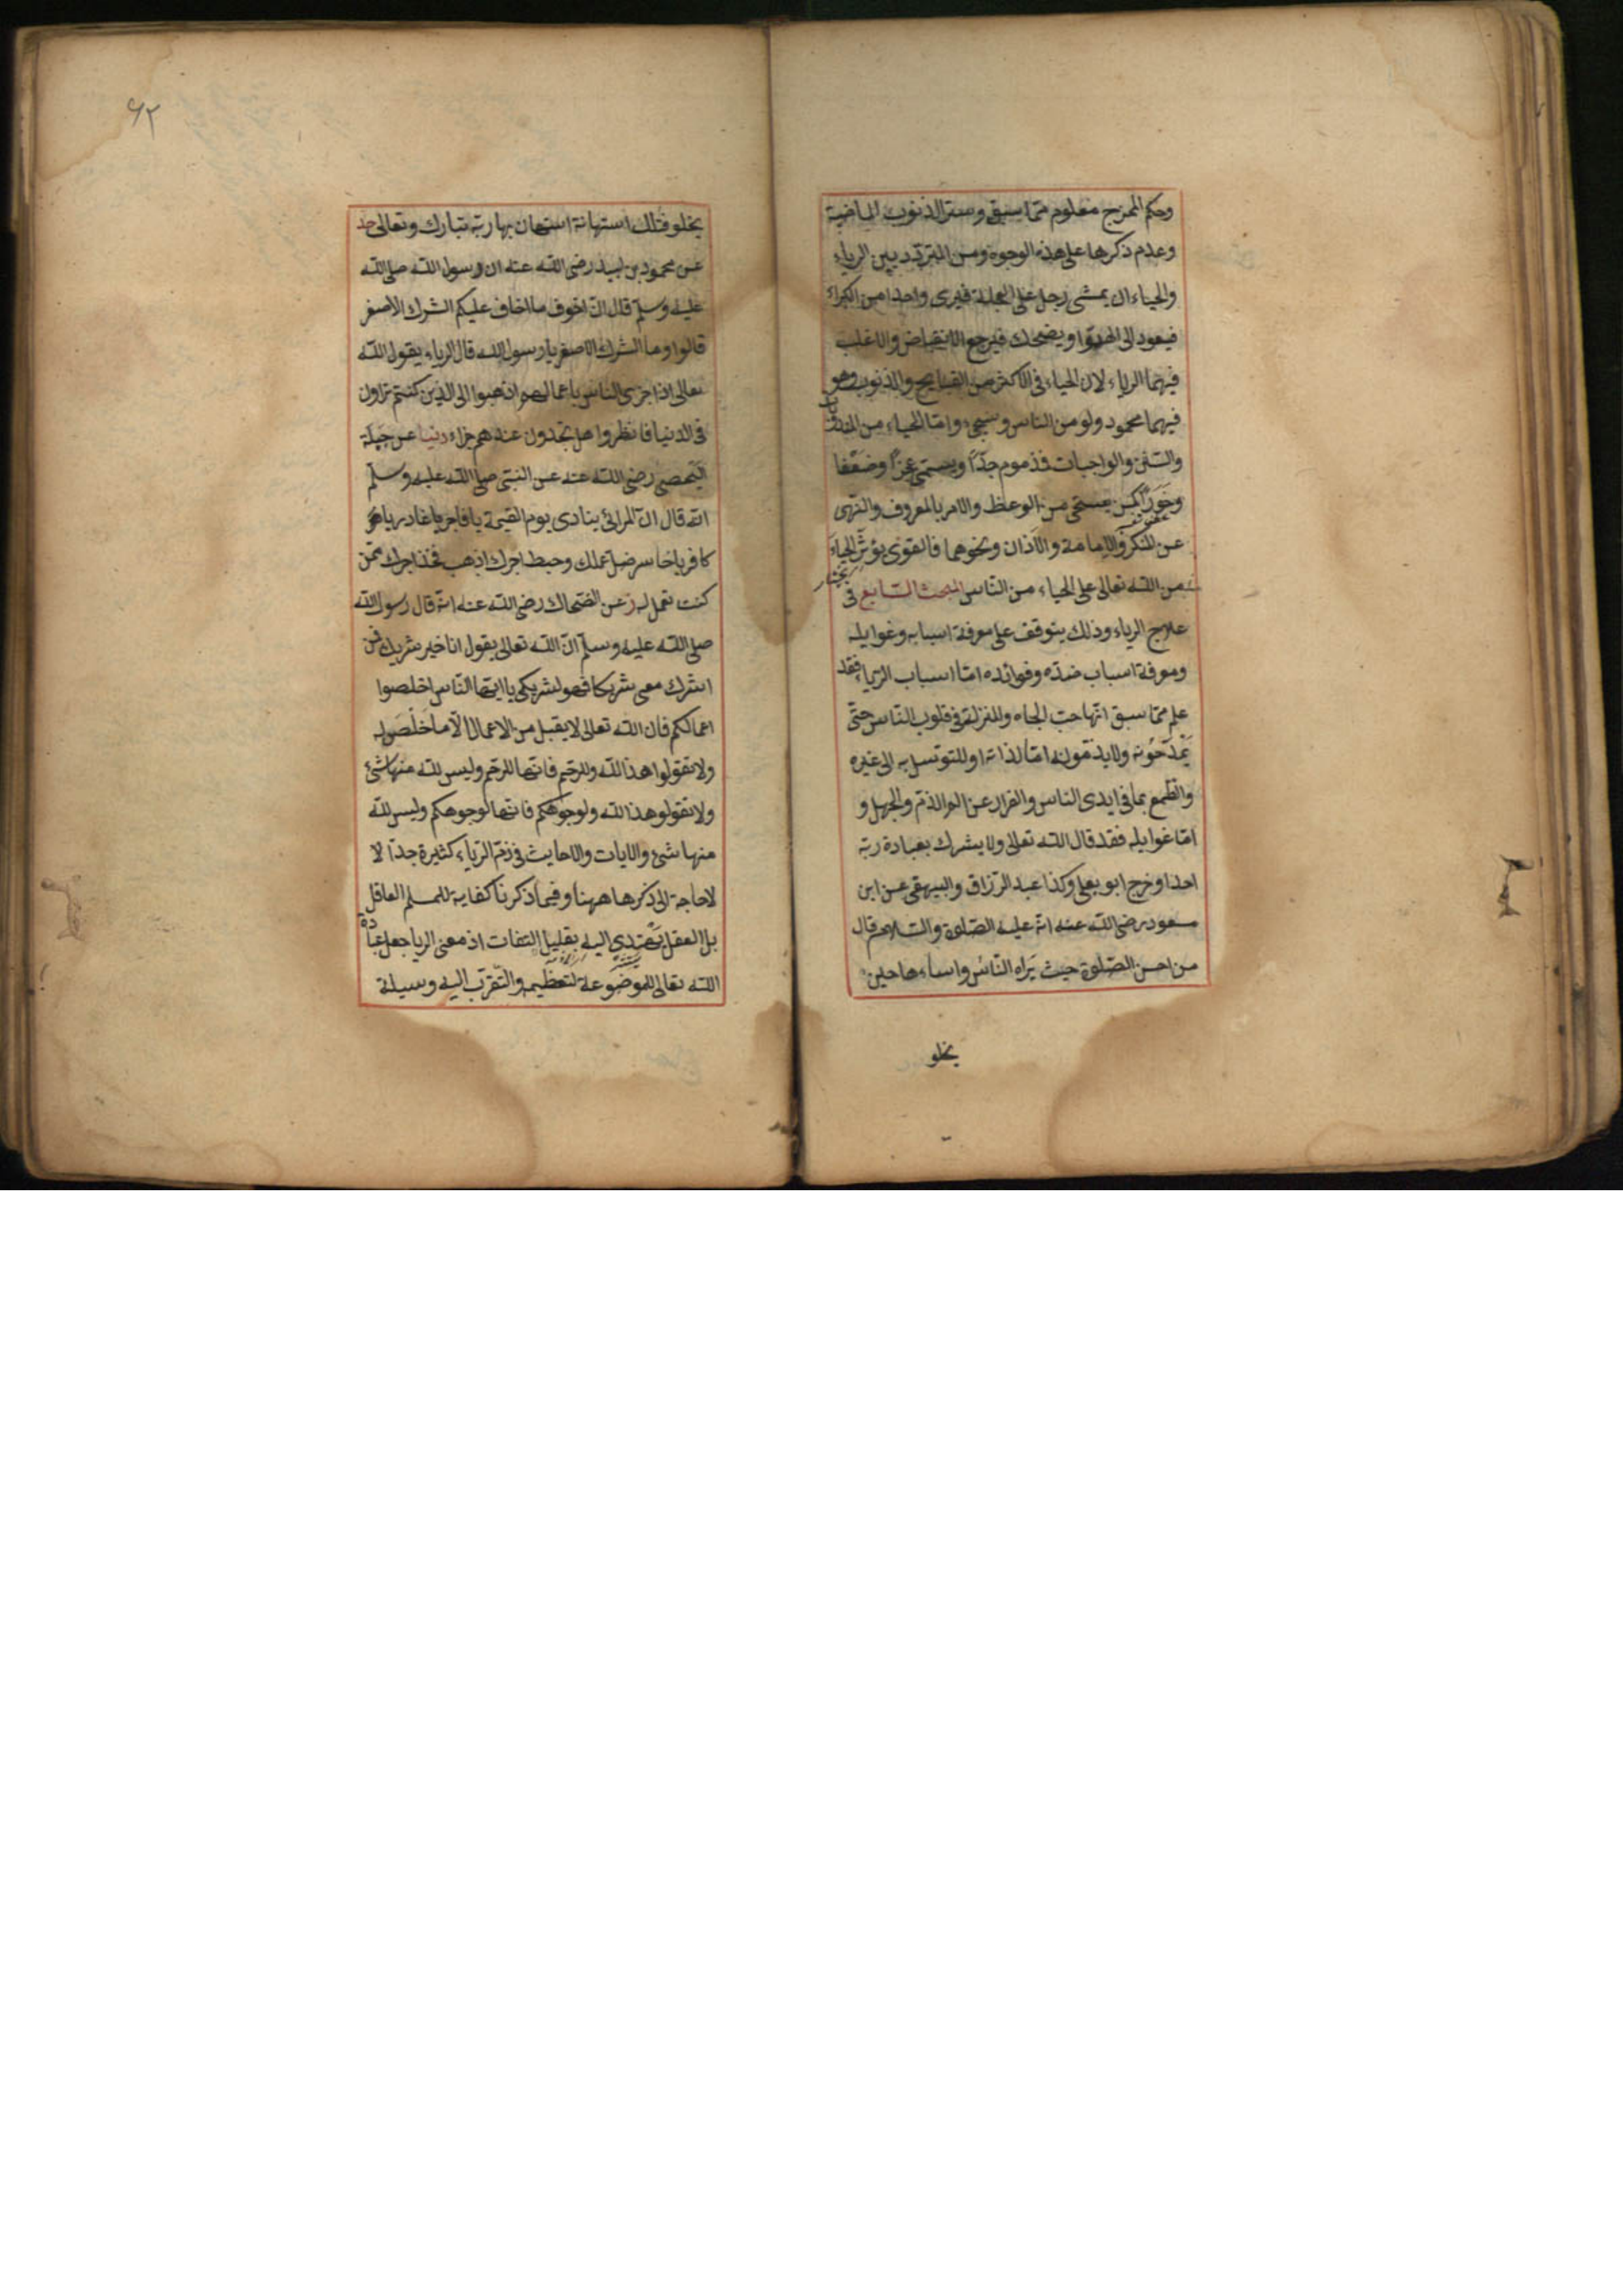 وحكم الممزج معلوم مما سبق وستر الذنوب الماضية
وعدم ذكرها على هذه الوجوه ومن التردد بين الرياء
والحياء ان يمشى رجل على العجلة فيرى واحدا من الكبراء
فيعود الى الهدوّ او يضحك فيرجع الانقباض والاغلب
فيهما الرياء لان الحياء فى الاكثر من القبايح والذنوب وهو
فيهما محمود ولو من الناس وسيجئ واما الحياء من المندوبات
والسنن والواجبات فمذموم جدّا ويسمى عجزًا وضعفا
وخَوَرًا كمن يستحى من الوعظ والامر بالمعروف والنهى
عن المنكر والامامة والاذان ونحوهما فالقوى يؤثر الحياءَ
يختار
من الله تعالى على الحياء من الناس المبحث السابع فى
علاج الرياء وذلك يتوقف على معرفة اسبابه وغوايله
ومعرفة اسباب ضدّه وفوائده امّا اسباب الرياء فقد
علم مما سبق انّها حب الجاه والمنزلة فى قلوب الناس حتّى
يَمْدَحُونه ولا يذمّونه امّا لذاته او للتوسل به الى غيره
والطمع بما فى ايدى الناس والفرار عن الم الذمّ والجهل و
امّا غوايله فقد قال الله تعالى ولا يشرك بعبادة ربّه
احدا وخرج ابو يعلى وكذا عبد الرّزاق والبيهقى عن ابن
مسعود رضى الله عنه انّه عليه الصلوة والسلام قال
من احسن الصّلوة حيث يَراه النّاسُ واساءها حين
يخلو
٦٢
يخلو فتلك استهانة استهان بها ربّه تبارك وتعالى حد
عن محمود بن لبيد رضى الله عنه ان رسول الله صلى الله
عليه وسلم قال انّ اخوف ما اخاف عليكم الشرك الاصغر
قالوا وما الشرك الاصغر يا رسول الله قال الرياء يقول الله
تعالى اذا جزى الناس باعمالهم اذهبوا الى الذين كنتم تراون
فى الدنيا فانظروا هل تجدون عندهم جزاء دنيا عن جبلة
اليحصبى رضى الله عنه عن النبى صلى الله عليه وسلّم
انّه قال انّ المرائى ينادى يوم القيمة يا فاجر يا غادر يا
كافر يا خاسر ضل عملك وحبط اجرك اذهب فخذ اجرك ممّن
كنت تعمل له ز عن الضحاك رضى الله عنه انّه قال رسول الله
صلى الله عليه وسلم انّ الله تعالى يقول انا خير شريك فمن
اشرك معى شريكا فهو لشريكى يا ايّها النّاس اخلصوا
اعمالكم فان الله تعالى لا يقبل من الاعمال الّا ما خَلَصَ له
ولا تقولوا هذا لله وللرّحم فانّها للرّحم وليس لله منها شئ
ولا تقولو هذا لله ولوجوهكم فانّها لوجوهكم وليس لله
منها شئ والايات والاحايث فى ذمّ الرّياء كثيرة جدّا لا
لاحاجة الى ذكرها ههنا وفيما ذكرنا كفاية للمسلم العاقل
بل العقل يَهْتدى اليه بقليل التفات اذ معنى الريا جعل عبادة
الله تعالى الموضوعة لتعظيمه والتّقرّب اليه وسيلة